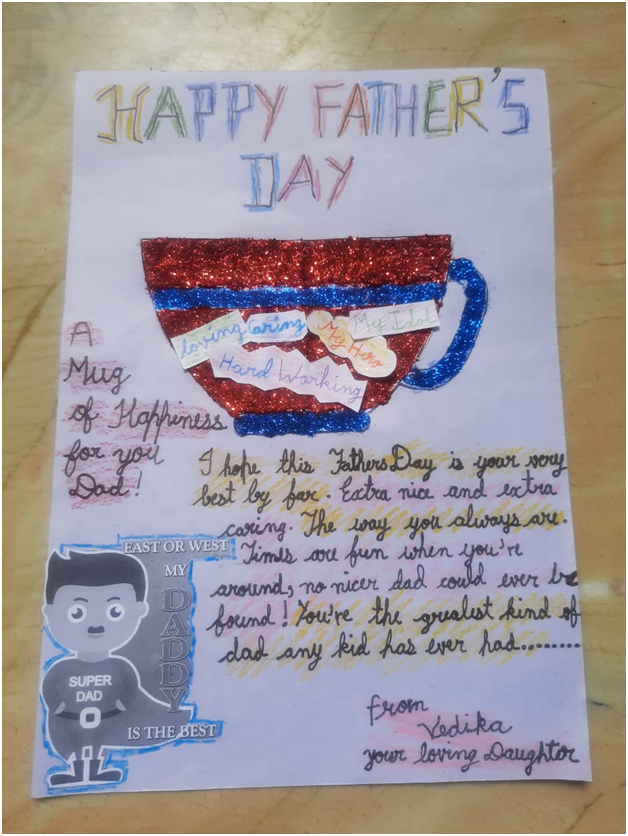 HAPPY FATHER'S
DAY
loving Caring
My Hero
My Idol
Hard Working
A
Mug
of Happiness
for you
Dad!
I hope this Fathers Day is your very
best by far. Extra nice and extra
caring. The way you always are.
Times are fun when you're
around, no nicer dad could ever be
found! You're the greatest kind of
dad any kid has ever had..........
EAST OR WEST
MY
DADDY
IS THE BEST
SUPER
DAD
from
Vedika
your loving Daughter